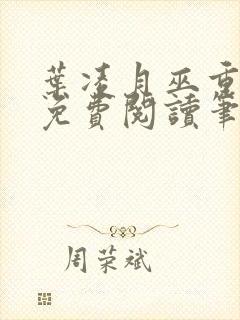 葉凌月巫重
免費閱讀筆
周荣斌